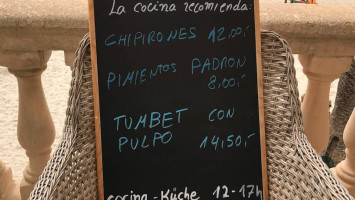 La cocina recomienda:
CHIPIRONES 12,00,-
PIMIENTOS PADRON
8,00,-
TUMBET CON
PULPO 14,50,-
cocina - Küche 12-17h